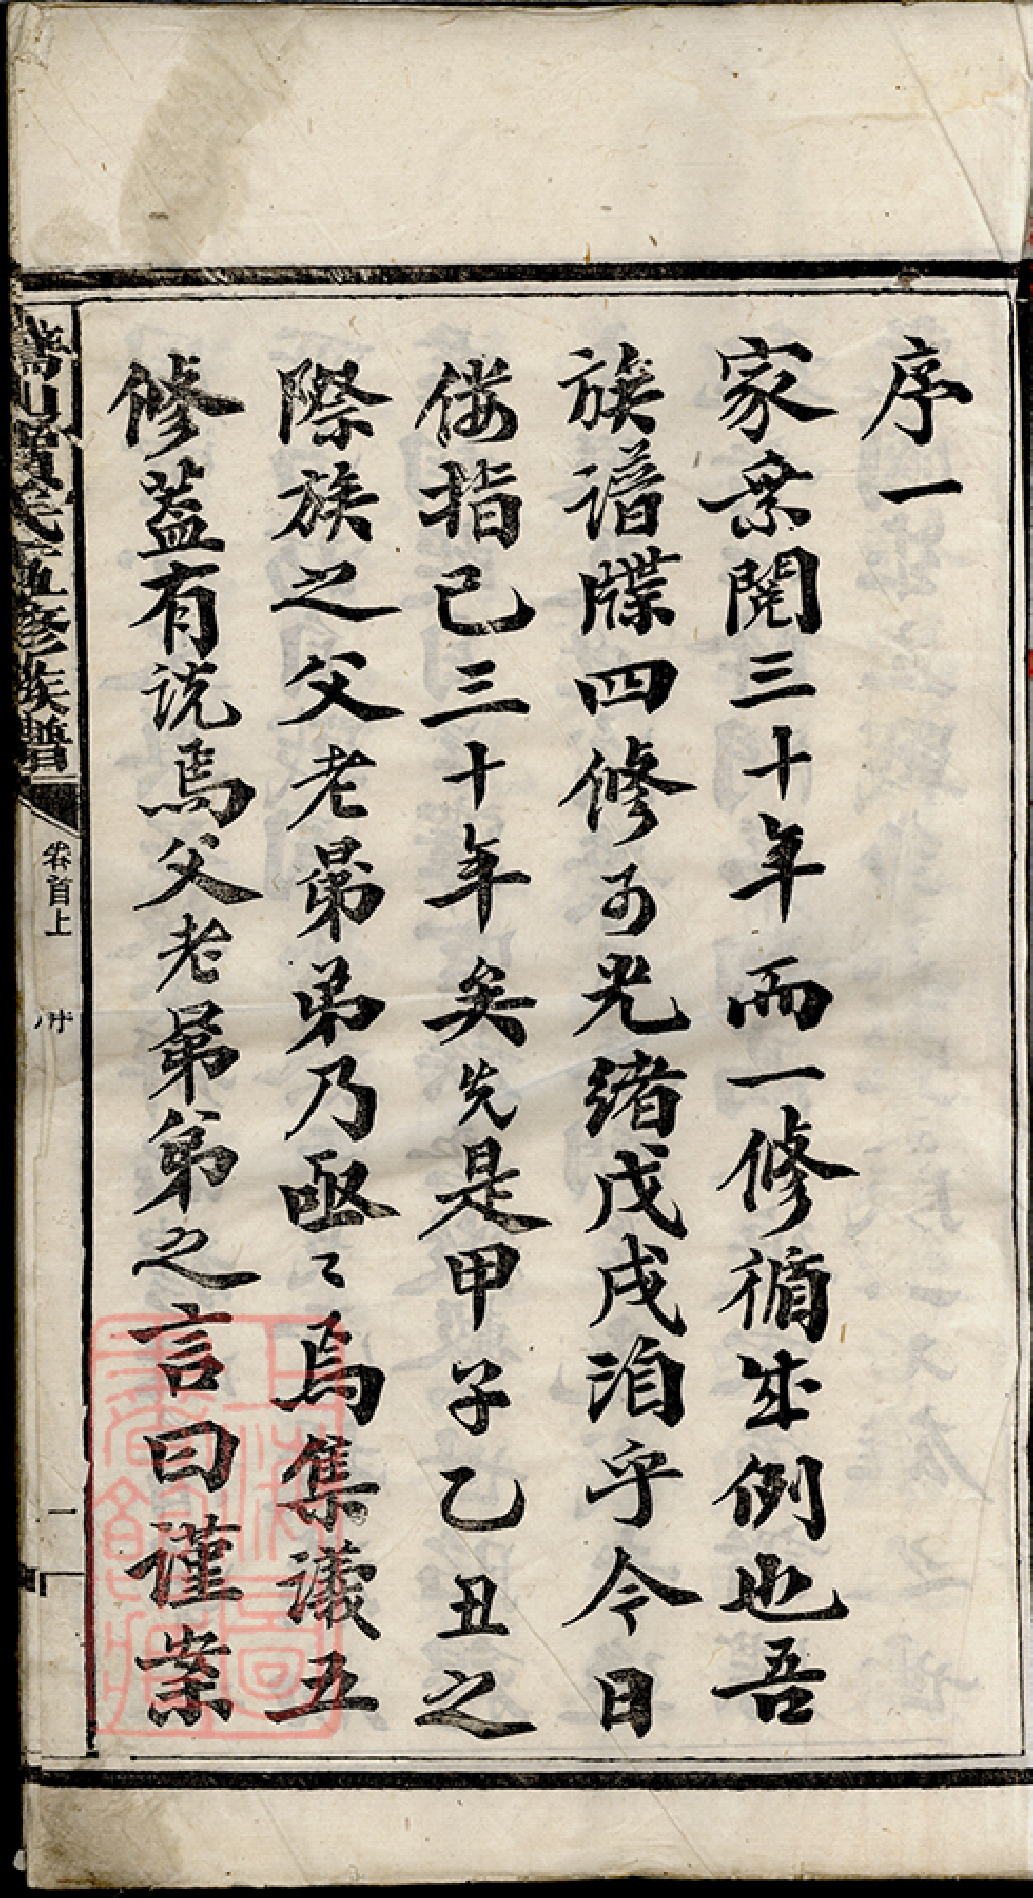 序一
家乗閱三十年而一修循成例也吾
族譜牒四修於光緒戊戌洎乎今日
偻指已三十年矣先是甲子乙丑之
際族之父老昆弟乃亟〻焉集議五
修蓋有説焉父老昆弟之言曰謹案
氏五修族譜
卷首上
一
上海圖書館藏